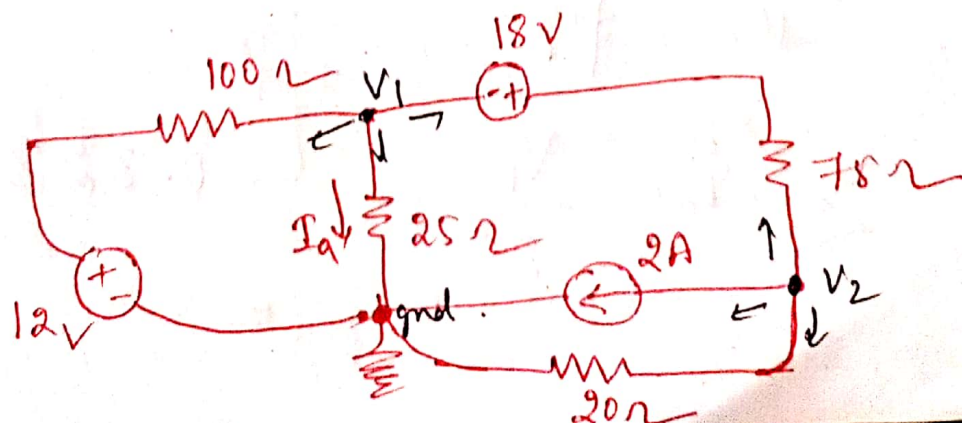 18V
100Ω
V1
- +
75Ω
Ia
25Ω
2A
V2
+
-
12V
gnd.
20Ω